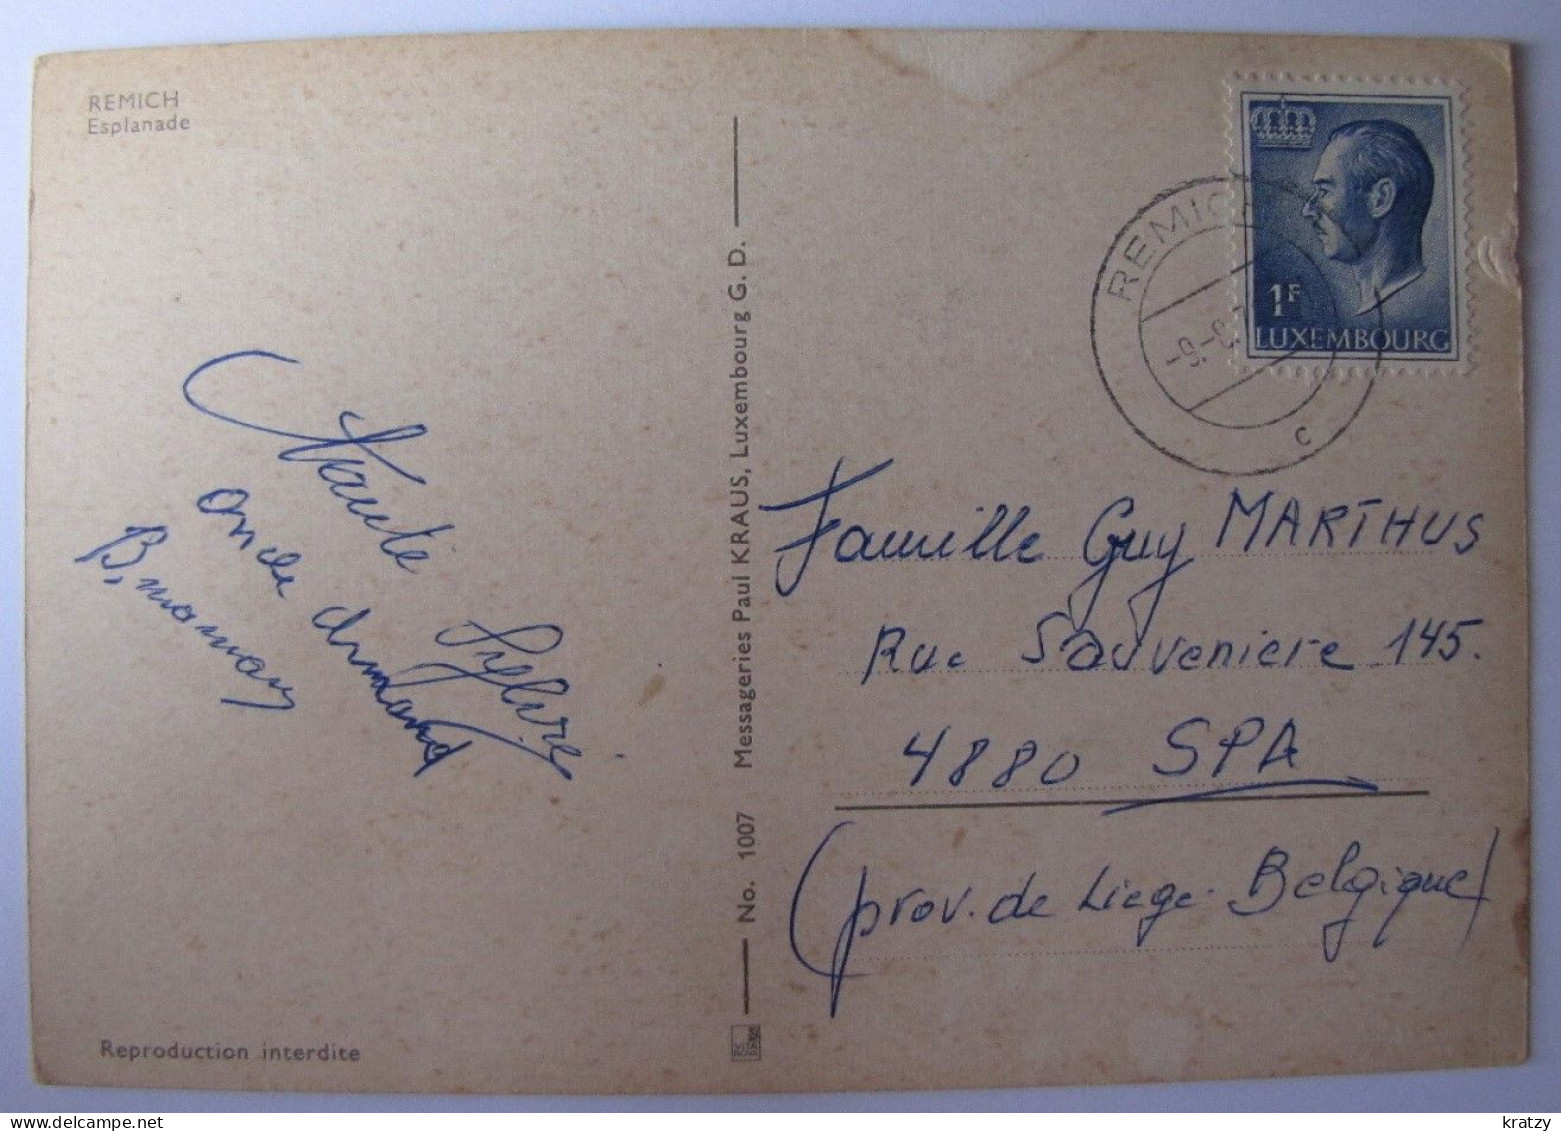 REMICH
Esplanade
Tante
oncle Armand
B. maman
Reproduction interdite
No. 1007 Messageries Paul KRAUS, Luxembourg G. D.
1F
LUXEMBOURG
REMICH
c
Famille Guy MARTHUS
Rue Sauveniere 145.
4880 SPA
(prov. de Liege. Belgique)
kratzy